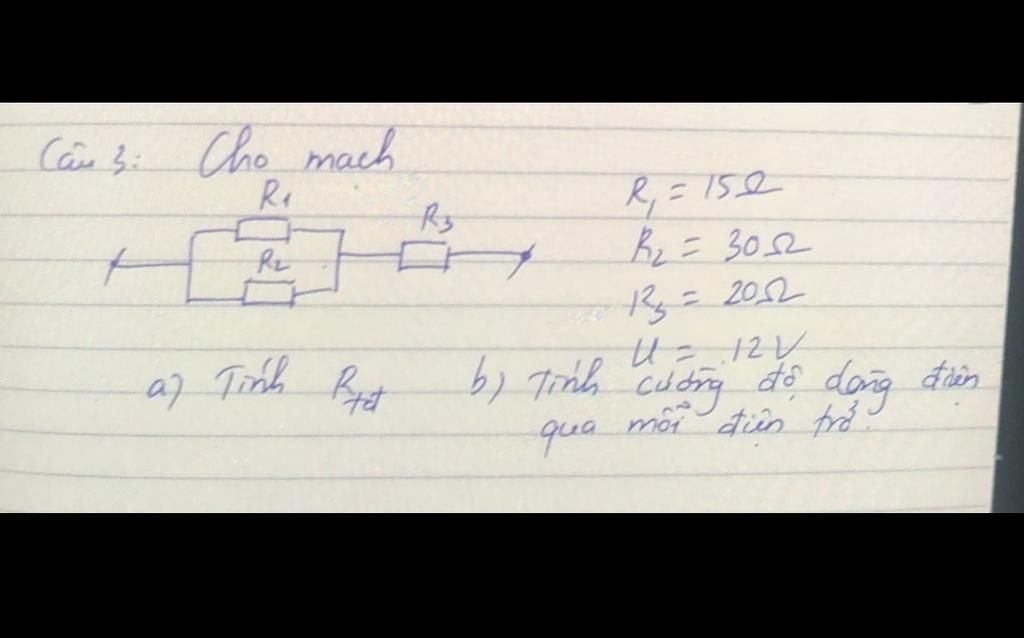 Câu 3: Cho mach
R1
R2
R3
R1 = 15Ω
R2 = 30Ω
R3 = 20Ω
U = 12V
a) Tính Rtđ
b) Tính cường độ dòng điện
qua mỗi điện trở.